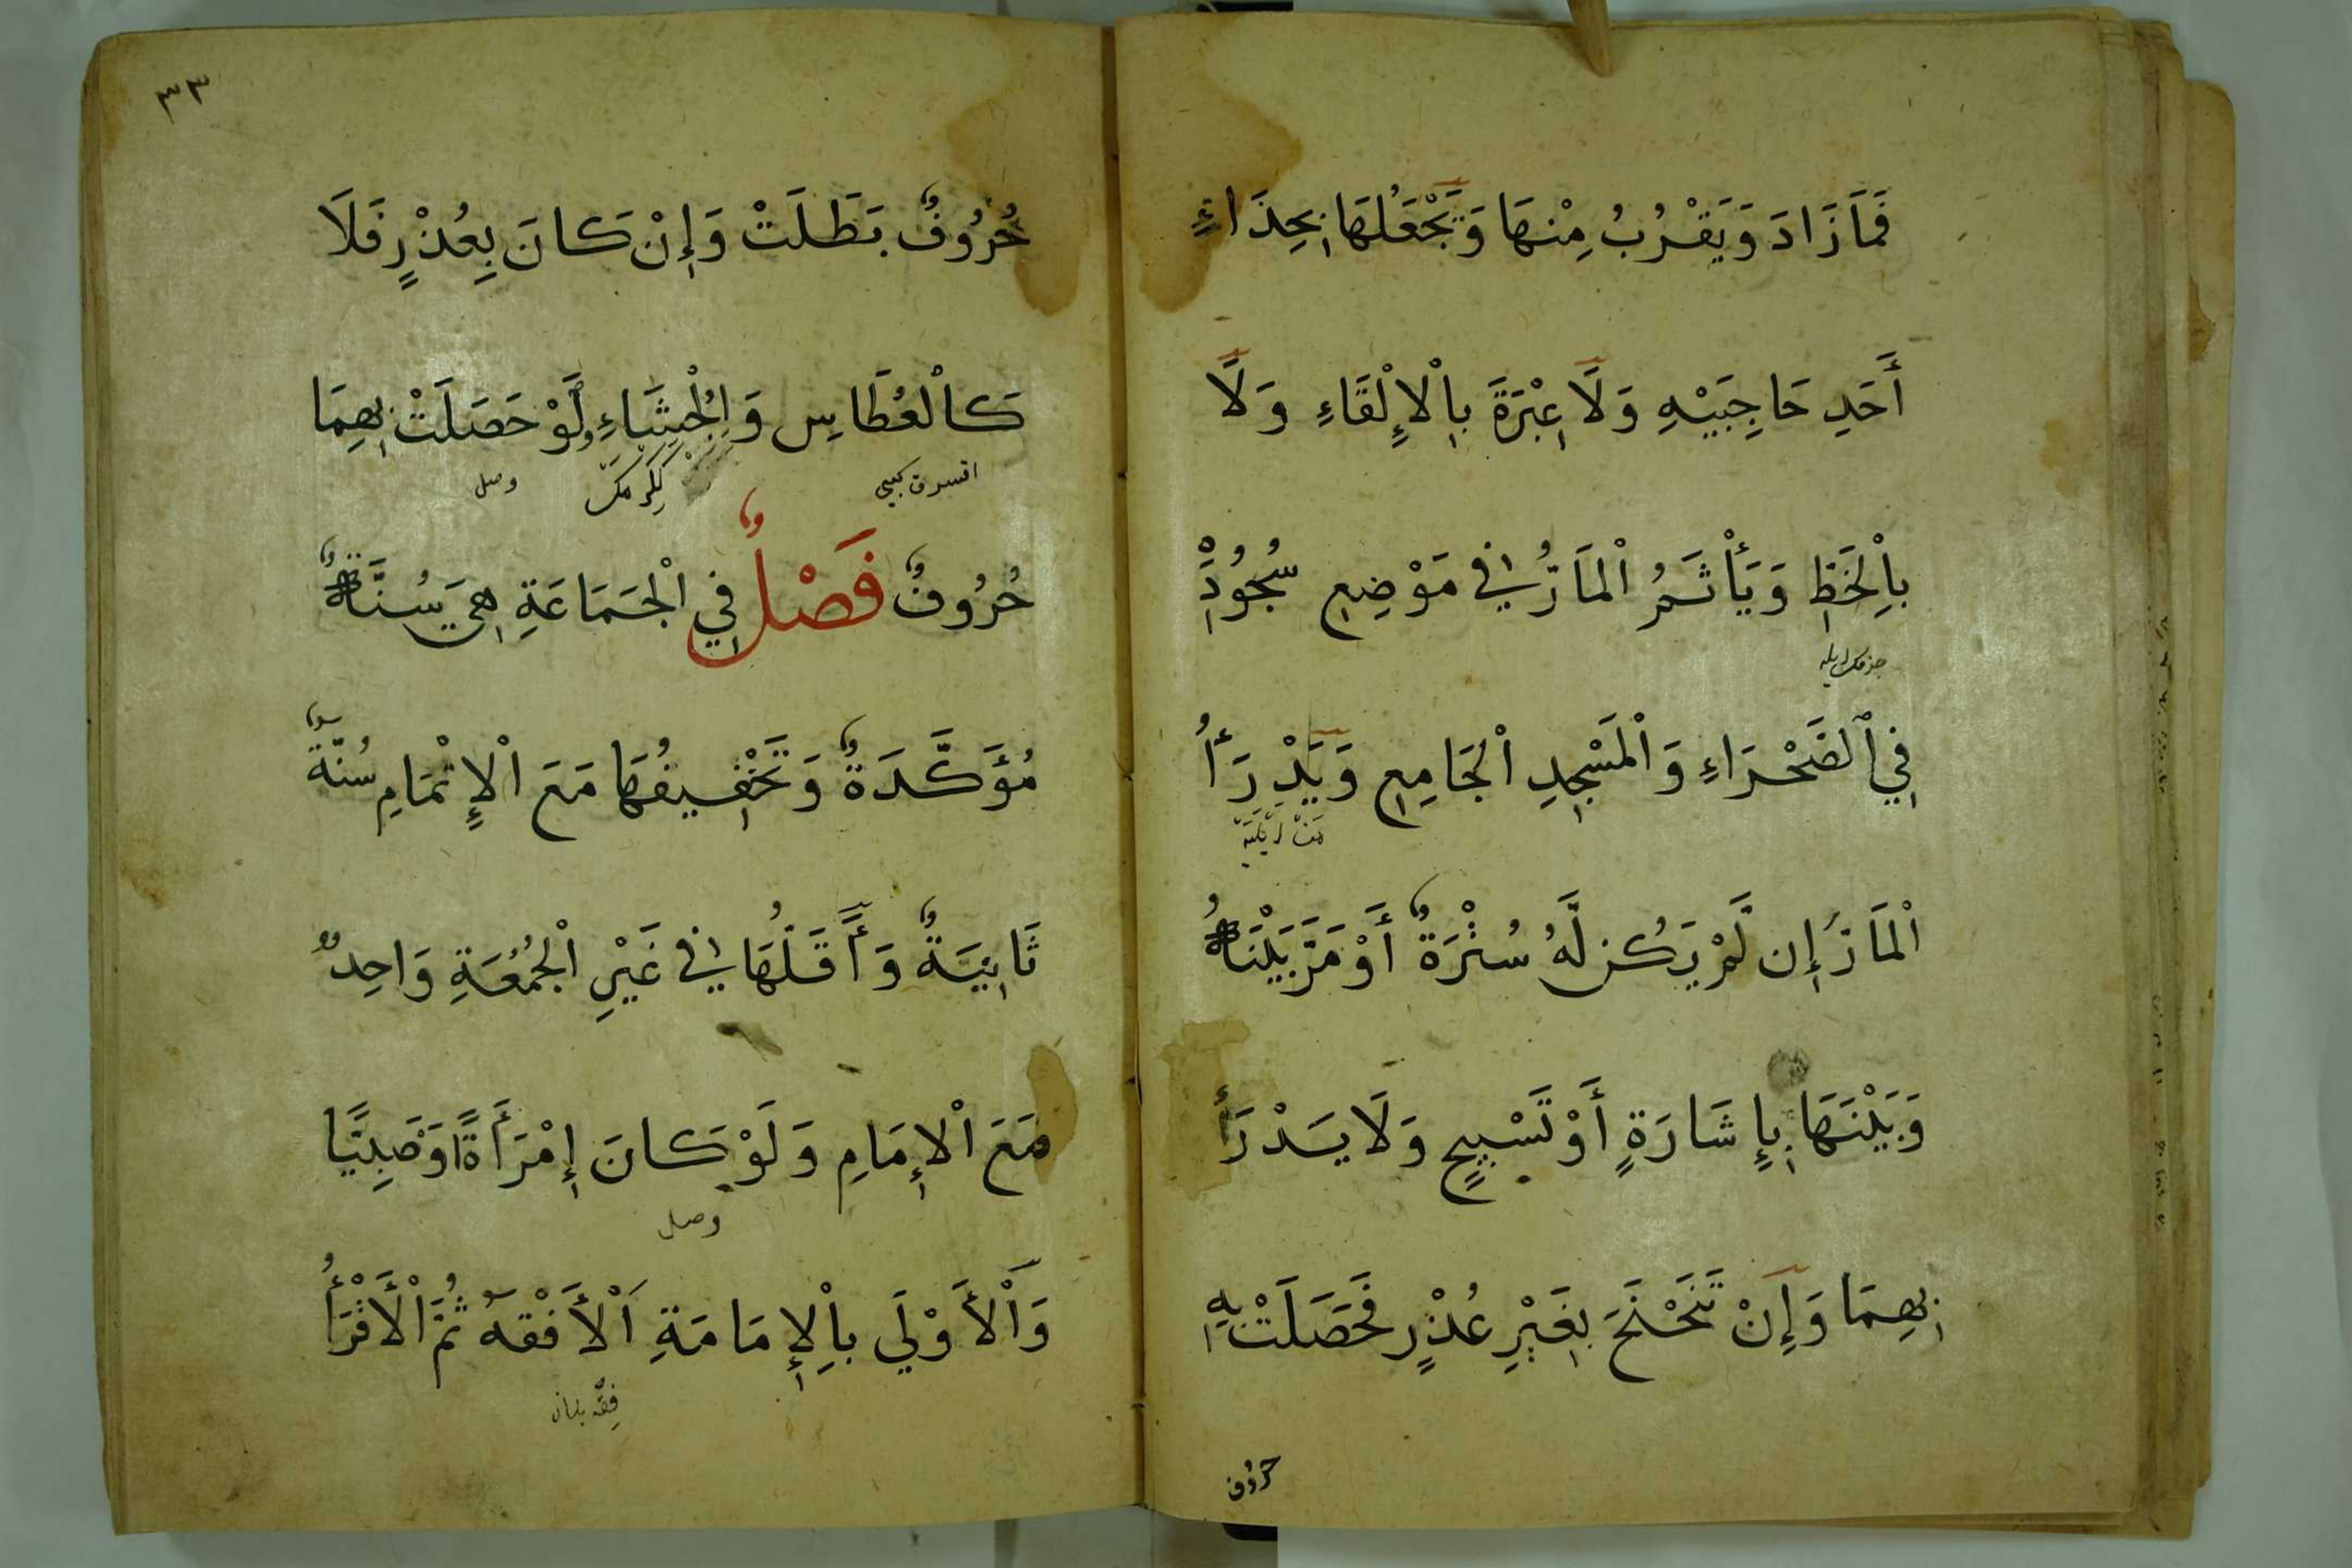 فَمَا زَادَ وَيَقْرُبُ مِنْهَا وَيَجْعَلُهَا بِحِذَاءِ
أَحَدِ حَاجِبَيْهِ وَلَا عِبْرَةَ بِاْلإِلْقَاءِ وَلَا
بِاْلخَطِّ وَيَأْثَمُ اْلمَارُّ فِي مَوْضِعِ سُجُودِهِ
فِي اْلصَّحْرَاءِ وَاْلمَسْجِدِ اْلجَامِعِ وَيَدْرَأُ
اْلمَارَّ إِن لَّمْ يَكُن لَّهُ سُتْرَةٌ أَوْ مَرَّ بَيْنَهُ
وَبَيْنَهَا بِإِشَارَةٍ أَوْ تَسْبِيحٍ وَلَا يَدْرَأُ
بِهِمَا وَإِنْ تَنَحْنَحَ بِغَيْرِ عُذْرٍ فَحَصَلَتْ بِهِ
حروف
٣٣
حُرُوفٌ بَطَلَتْ وَإِنْ كَانَ بِعُذْرٍ فَلَا
كَاْلعُطَاسِ وَاْلجُشَاءِ وَلَوْ حَصَلَتْ بِهِمَا
وصل
حُرُوفٌ فَصْلٌ فِي اْلجَمَاعَةِ هِيَ سُنَّةٌ
مُؤَكَّدَةٌ وَتَخْفِيفُهَا مَعَ اْلإِتْمَامِ سُنَّةٌ
ثَانِيَةٌ وَأَقَلُّهَا فِي غَيْرِ اْلجُمُعَةِ وَاحِدٌ
مَعَ اْلإِمَامِ وَلَوْ كَانَ إِمْرَأَةً أَوْ صَبِيًّا
وصل
وَاْلأَوْلَي بِاْلإِمَامَةِ اَلْأَفْقَهُ ثُمَّ اْلأَقْرَأُ